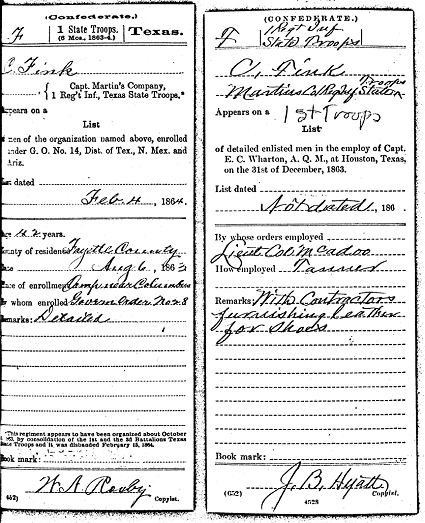 (Confederate.)
F
1 State Troops,
(6 Mos., 1863-4.)
Texas.
C. Fink
Capt. Martin's Company,
1 Reg't Inf., Texas State Troops.*
Appears on a
List
men of the organization named above, enrolled
under G. O. No. 14, Dist. of Tex., N. Mex. and
Ariz.
List dated
Feb. 4, 1864.
Age 42 years.
County of residence Fayette County
Date Aug 6, 1863
Place of enrollment Camp near Columbus
By whom enrolled Govern Order No 28
Remarks: Detailed
*This regiment appears to have been organized about October
1863, by consolidation of the 1st and the 3d Battalions Texas
State Troops and it was disbanded February 15, 1864.
Book mark:
W. A.
Copyist.
652)
(CONFEDERATE.)
F
1 Regt Inf
State Troops
C. Fink
Martins Co. 1 Reg Inf State Troops
Appears on a 1st Troops
List
of detailed enlisted men in the employ of Capt.
E. C. Wharton, A. Q. M., at Houston, Texas,
on the 31st of December, 1863.
List dated
Not dated, 186
By whose orders employed
Lieut. Col. McAdoo
How employed Tanner
Remarks: With Contractors
furnishing leather
for shoes
Book mark:
J. B. Hyatt
(652)
4528
Copyist.